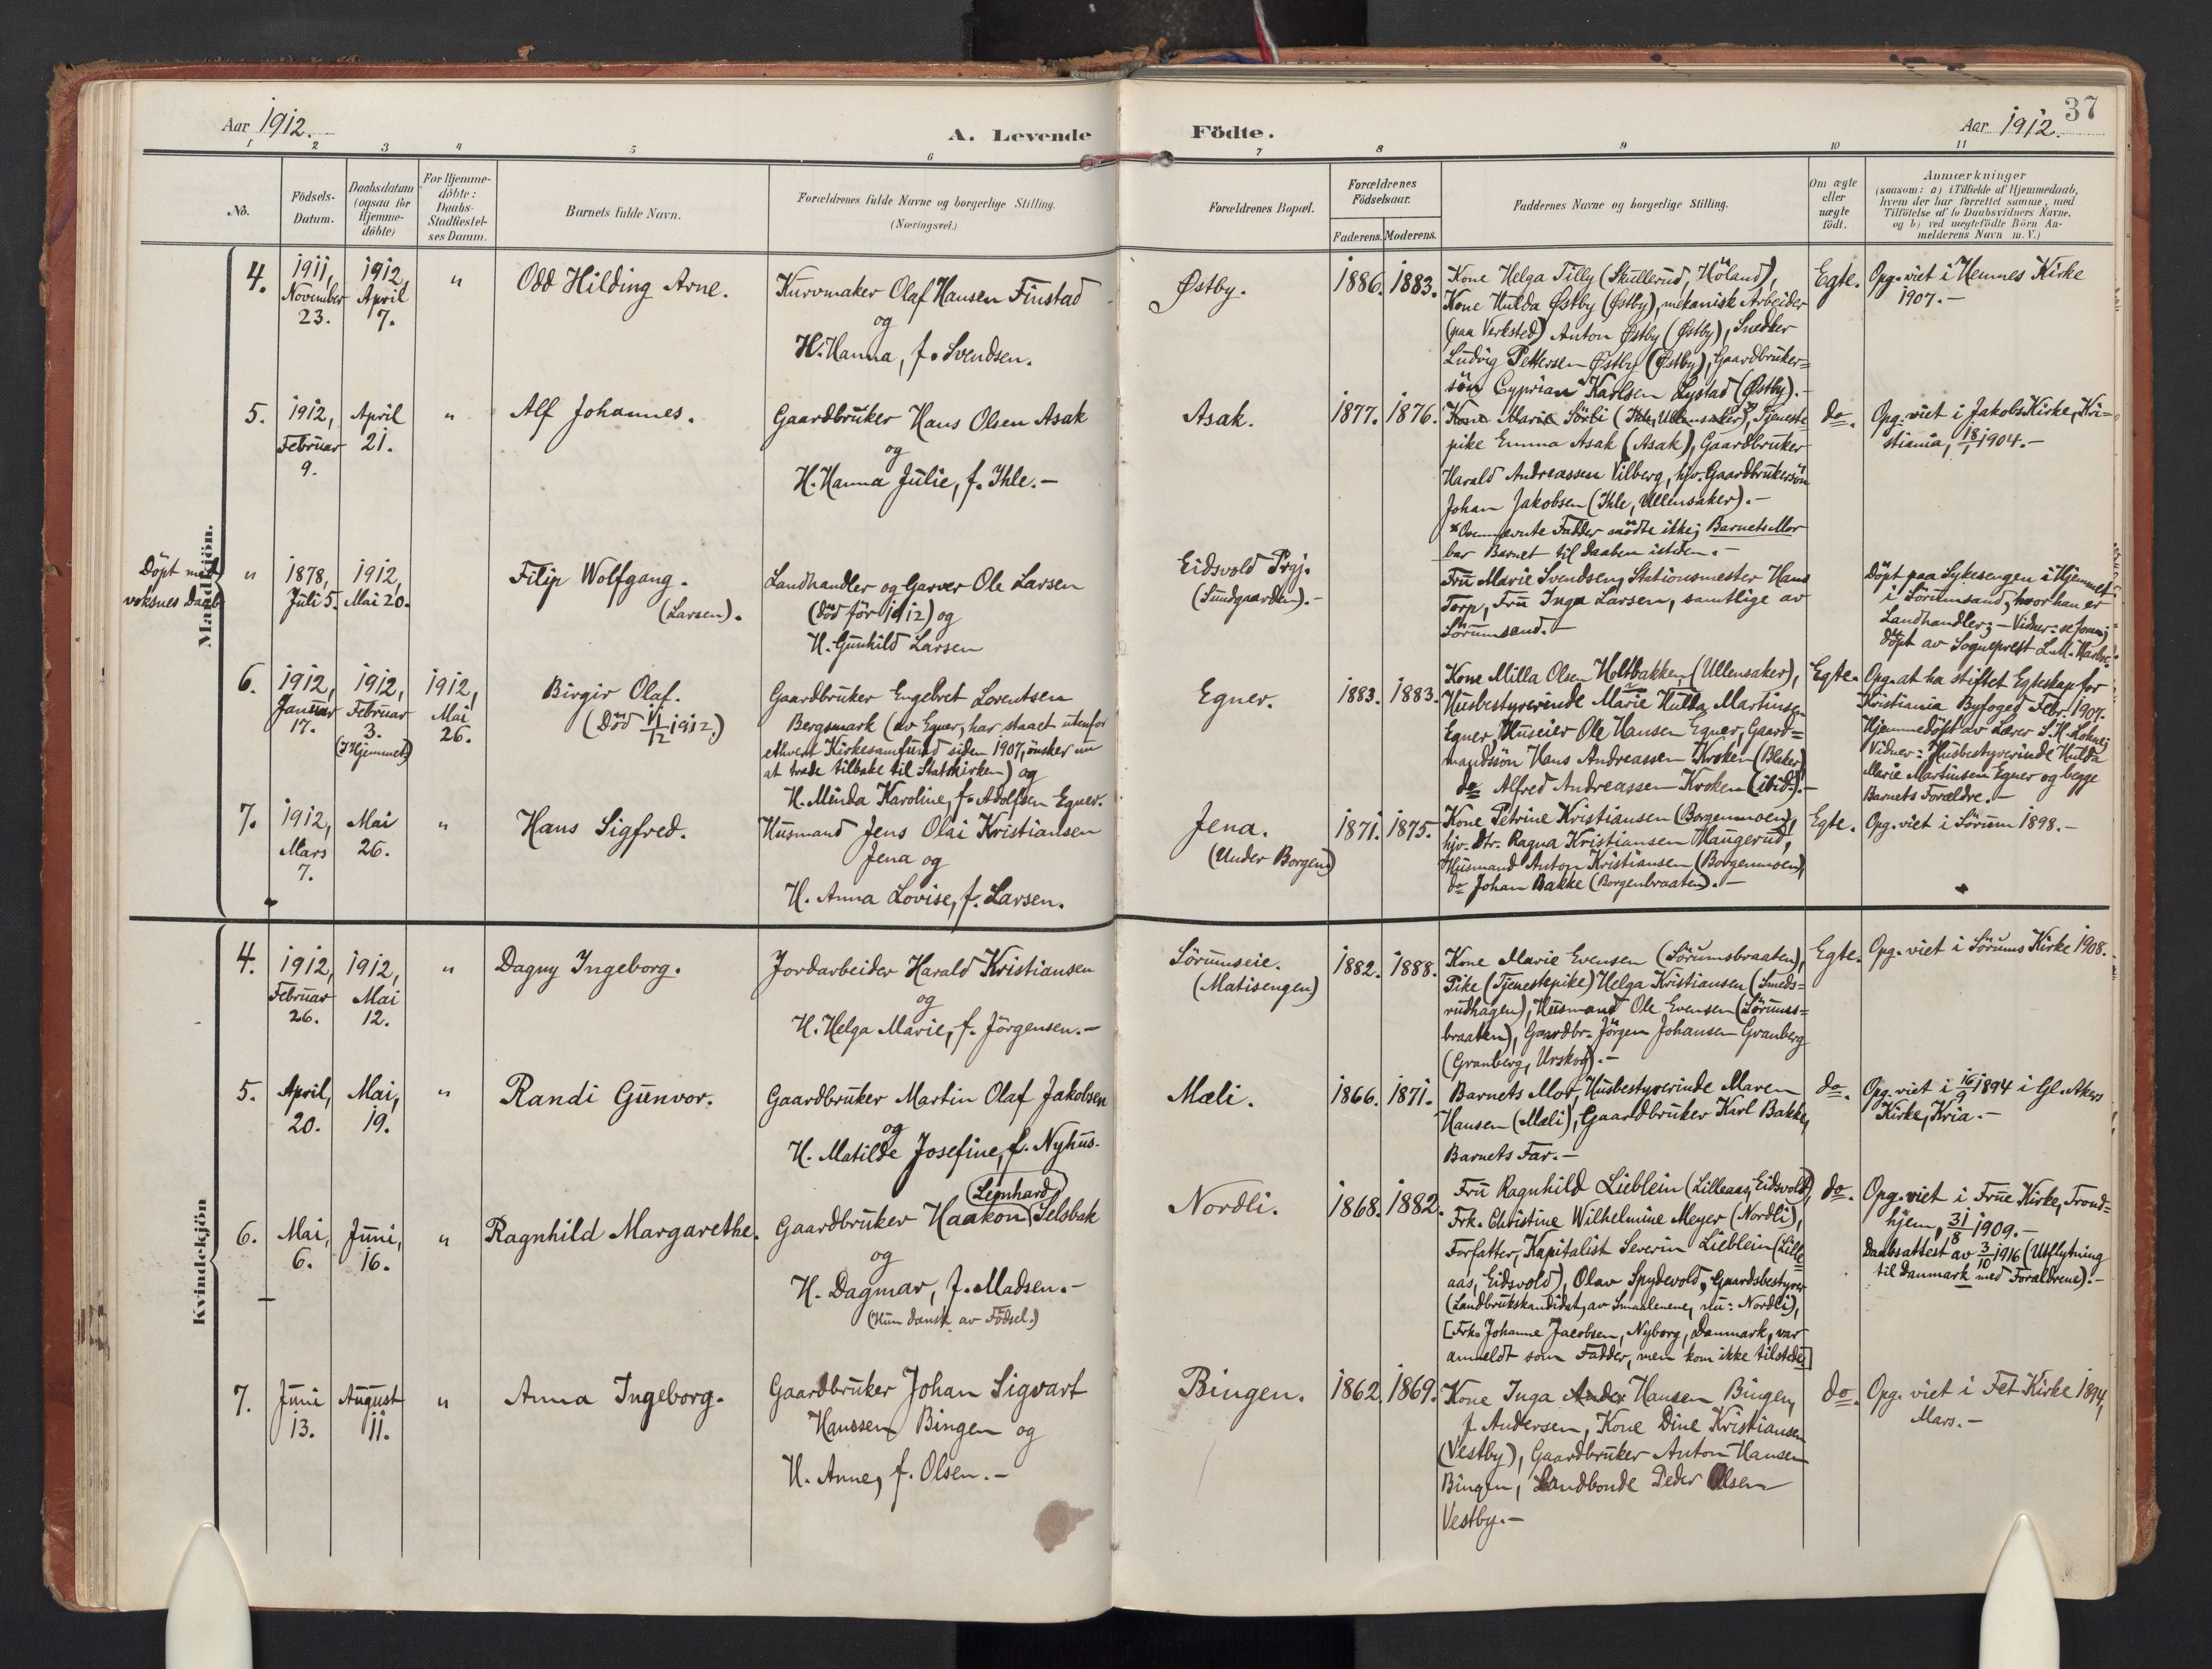 Aar 1912.
A. Levende
Födte.
Aar 1912.
37
1 2 3 4 5 6 7 8 9 10 11
No.
Födsels-
Datum.
Daabsdatum
(ogsaa for
Hjemme-
döbte)
For Hjemme-
döbte:
Daabs-
Stadfæstel-
ses Datum.
Barnets fulde Navn.
Forældrenes fulde Navne og borgerlige Stilling.
(Næringsvei.)
Forældrenes Bopæl.
Forældrenes
Födselsaar.
Faderens. Moderens.
Faddernes Navne og borgerlige Stilling.
Om ægte
eller
uægte
födt.
Anmærkninger
(saasom: a) i Tilfælde af Hjemmedaab,
hvem der har forrettet samme, med
Tilföielse af to Daabsvidners Navne,
og b) ved uægtefödte Börn An-
melderens Navn m. V.)
Mandkjön.
4.
1911,
November
23.
1912,
April
7.
"
Odd Hilding Arne.
Kurvmaker Olaf Hansen Finstad
og
H. Hanna, f. Svendsen.
Østby.
1886. 1883.
Kone Helga Tilly (Skullerud, Höland),
Kone Hulda Østby (Østby), mekanisk Arbeider
(paa Verksted) Anton Østby (Østby), Snedker
Ludvig Pettersen Østby (Østby), Gaardbruker=
sön Cyprian Karlsen Lystad (Østby).-
Egte.
Opg. viet i Hemnes Kirke
1907.-
5.
1912,
Februar
9.
April
21.
"
Alf Johannes.
Gaardbruker Hans Olsen Asak
og
H. Hanna Julie, f. Ihle.-
Asak.
1877. 1876.
Kone Marie Sörli (Ihle, Ullensaker), Tjeneste=
pike Emma Asak (Asak), Gaardbruker
Harald Andreassen Vilberg, hjv. Gaardbrukersön
Johan Jakobsen (Ihle, Ullensaker).-
* Ovennævnte Fadder mödte ikke; Barnets Mor
bar Barnet til Daaben istden.-
do.
Opg. viet i Jakobs Kirke, Kri=
stiania, 18/1 1904.-
Döpt med
voksnes Daab
"
1878,
Juli 5.
1912,
Mai 20.
Filip Wolfgang.
(Larsen).
Landhandler og Garver Ole Larsen
(död för 1912) og
H. Gunhild Larsen
Eidsvold Prgj.
(Sundgaarden).-
Fru Marie Svendsen, Stationsmester Hans
Torp, Fru Inga Larsen, samtlige av
Sörumsand.-
Döpt paa Sykesengen i Hjemmet
i Sörumsand, hvor han er
Landhandler;- Vidner: se foran;
döpt av Sogneprest L. M.
6.
1912,
Januar
17.
1912,
Februar
3.
(I Hjemmet)
1912,
Mai
26.
Birgir Olaf.
(Död 11/12 1912.)
Gaardbruker Engebret Lorentsen
Bergsmark (av Egner, har staaet utenfor
ethvert Kirkesamfund siden 1907, önsker nu
at træde tilbake til Statskirken) og
H. Minda Karoline, f. Adolfsen Egner.
Egner.
1883. 1883.
Kone Milla Olsen Holtbakken (Ullensaker),
Husbestyrerinde Marie Hulda Martinsen
Egner, Huseier Ole Hansen Egner, Gaard=
mandssön Hans Andreassen Kroken (Blaker)
do Alfred Andreassen Kroken (ibid.).-
Egte.
Opg. at ha stiftet Egteskap for
Kristiania Byfoged Febr. 1907.
Hjemmedöpt av Lærer S. H.
Vidner: Husbestyrerinde Hulda
Marie Martinsen Egner og begge
Barnets Forældre.-
7.
1912,
Mars
7.
Mai
26.
"
Hans Sigfred.
Husmand Jens Olai Kristiansen
Jena og
H. Anna Lovise, f. Larsen.
Jena.
(Under Borgen)
1871. 1875.
Kone Petrine Kristiansen (Borgenmoen),
hjv. Dtr. Ragna Kristiansen Haugerud,
Husmand Anton Kristiansen (Borgenmoen),
do Johan Bakke (Borgenbraaten).-
Egte.
Opg. viet i Sörum 1898.-
Kvindekjön
4.
1912,
Februar
26.
1912,
Mai
12.
"
Dagny Ingeborg.
Jordarbeider Harald Kristiansen
og
H. Helga Marie, f. Jörgensen.-
Sörumseie.
(Matisengen)
1882. 1888.
Kone Marie Evensen (Sörumsbraaten),
Pike (Tjenestepike) Helga Kristiansen (Smeds=
rudhagen), Husmand Ole Evensen (Sörums=
braaten), Gaardbr. Jörgen Johansen Granberg
(Granberg, Urskog).-
Egte.
Opg. viet i Sörums Kirke 1908.
5.
April,
20.
Mai,
19.
"
Randi Gunvor.
Gaardbruker Martin Olaf Jakobsen
og
H. Matilde Josefine, f. Nyhus.
Mæli.
1866. 1871.
Barnets Mor, Husbestyrerinde Maren
Hansen (Mæli), Gaardbruker Karl Bakke,
Barnets Far.-
do.
Opg. viet i 16/9 1894 i Gl. Akers
Kirke, Kria.-
6.
Mai,
6.
Juni,
16.
"
Ragnhild Margarethe.
(Leonhard)
Gaardbruker Haakon Selsbak
og
H. Dagmar, f. Madsen.-
(Hun dansk av Födsel.)
Nordli.
1868. 1882.
Fru Ragnhild Lieblein (Lilleaas, Eidsvold),
Frk. Christine Wilhelmine Meyer (Nordli),
Forfatter, Kapitalist Severin Lieblein (Lille=
aas, Eidsvold), Olav Spydevold, Gaardsbestyrer
(Landbrukskandidat, av Smaalenene, nu: Nordli),
[Frk. Johanne Jacobsen, Nyborg, Danmark, var
anmeldt som Fadder, men kom ikke tilstede]
do.
Opg. viet i Frue Kirke, Trond=
hjem, 31/8 1909.-
Daabsattest av 3/10 1916 (Utflytning
til Danmark med Forældrene).-
7.
Juni
13.
August
11.
"
Anna Ingeborg.
Gaardbruker Johan Sigvart
Hanssen Bingen og
H. Anne, f. Olsen.-
Bingen.
1862. 1869.
Kone Inga Ander Hansen Bingen,
f. Andersen, Kone Dine Kristiansen
(Vestby), Gaardbruker Anton Hansen
Bingen, Landbonde Peder Olsen
Vestby.-
do.
Opg. viet i Fet Kirke 1894,
Mars.-